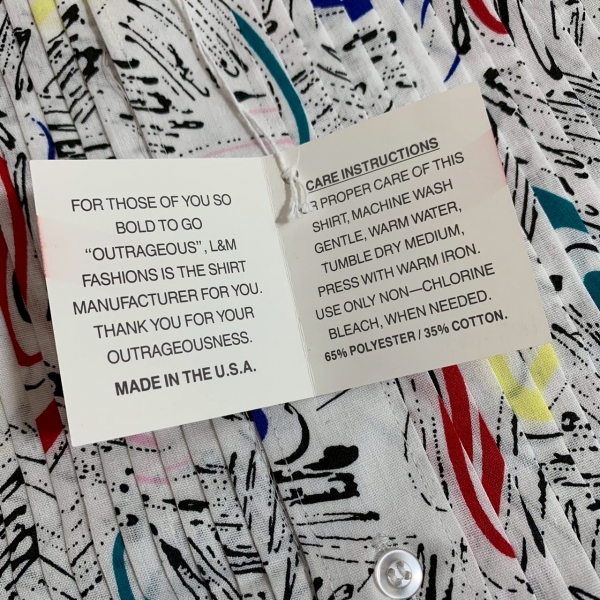 FOR THOSE OF YOU SO
BOLD TO GO
“OUTRAGEOUS”, L&M
FASHIONS IS THE SHIRT
MANUFACTURER FOR YOU.
THANK YOU FOR YOUR
OUTRAGEOUSNESS.
MADE IN THE U.S.A.
CARE INSTRUCTIONS
R PROPER CARE OF THIS
SHIRT, MACHINE WASH
GENTLE, WARM WATER,
TUMBLE DRY MEDIUM,
PRESS WITH WARM IRON.
USE ONLY NON—CHLORINE
BLEACH, WHEN NEEDED.
65% POLYESTER / 35% COTTON.